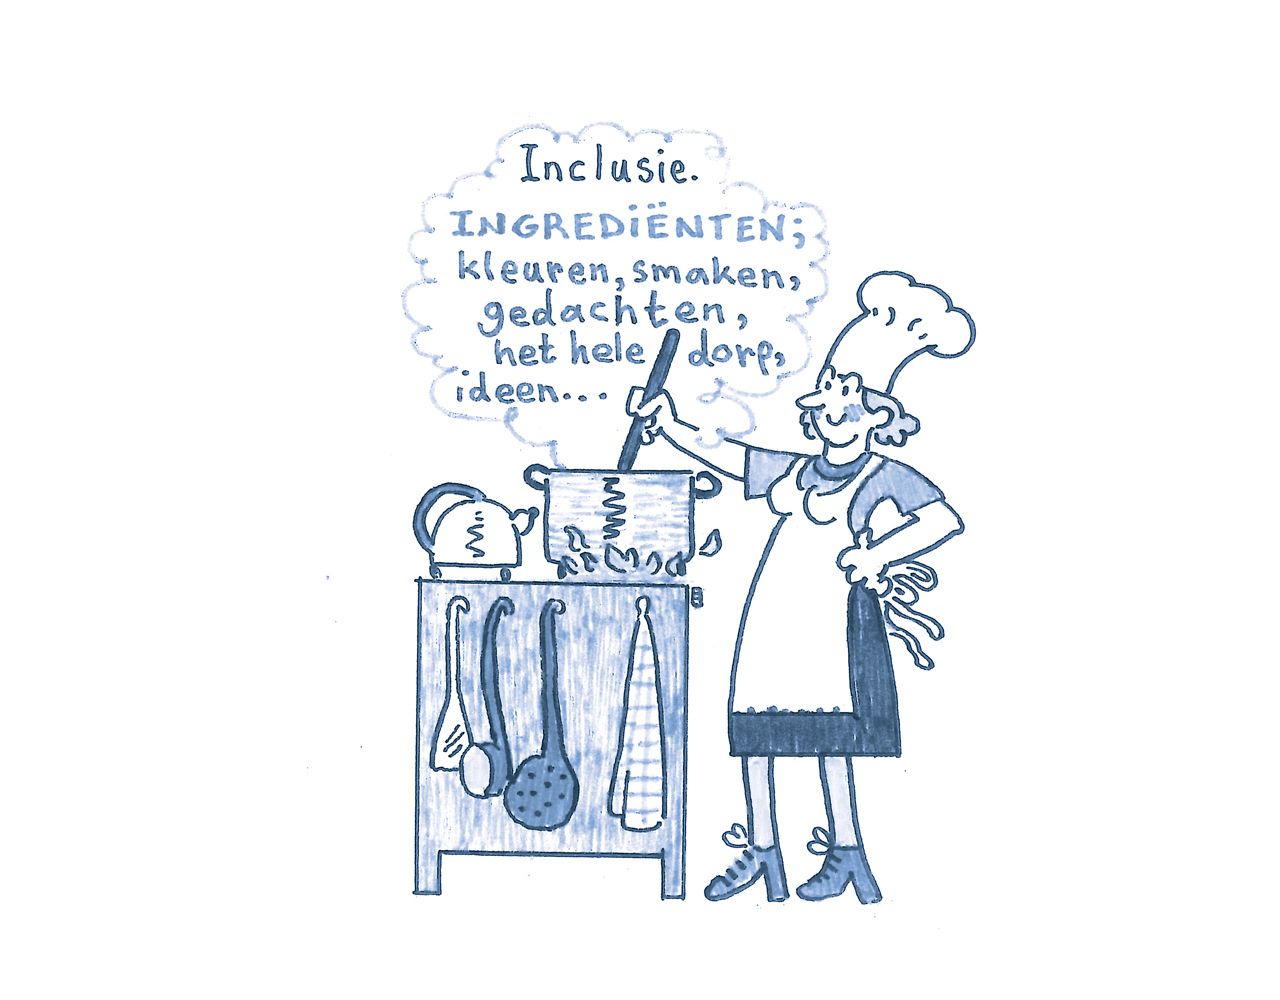 Inclusie.
INGREDiËNTEN;
kleuren, smaken,
gedachten,
het hele dorp,
ideen...